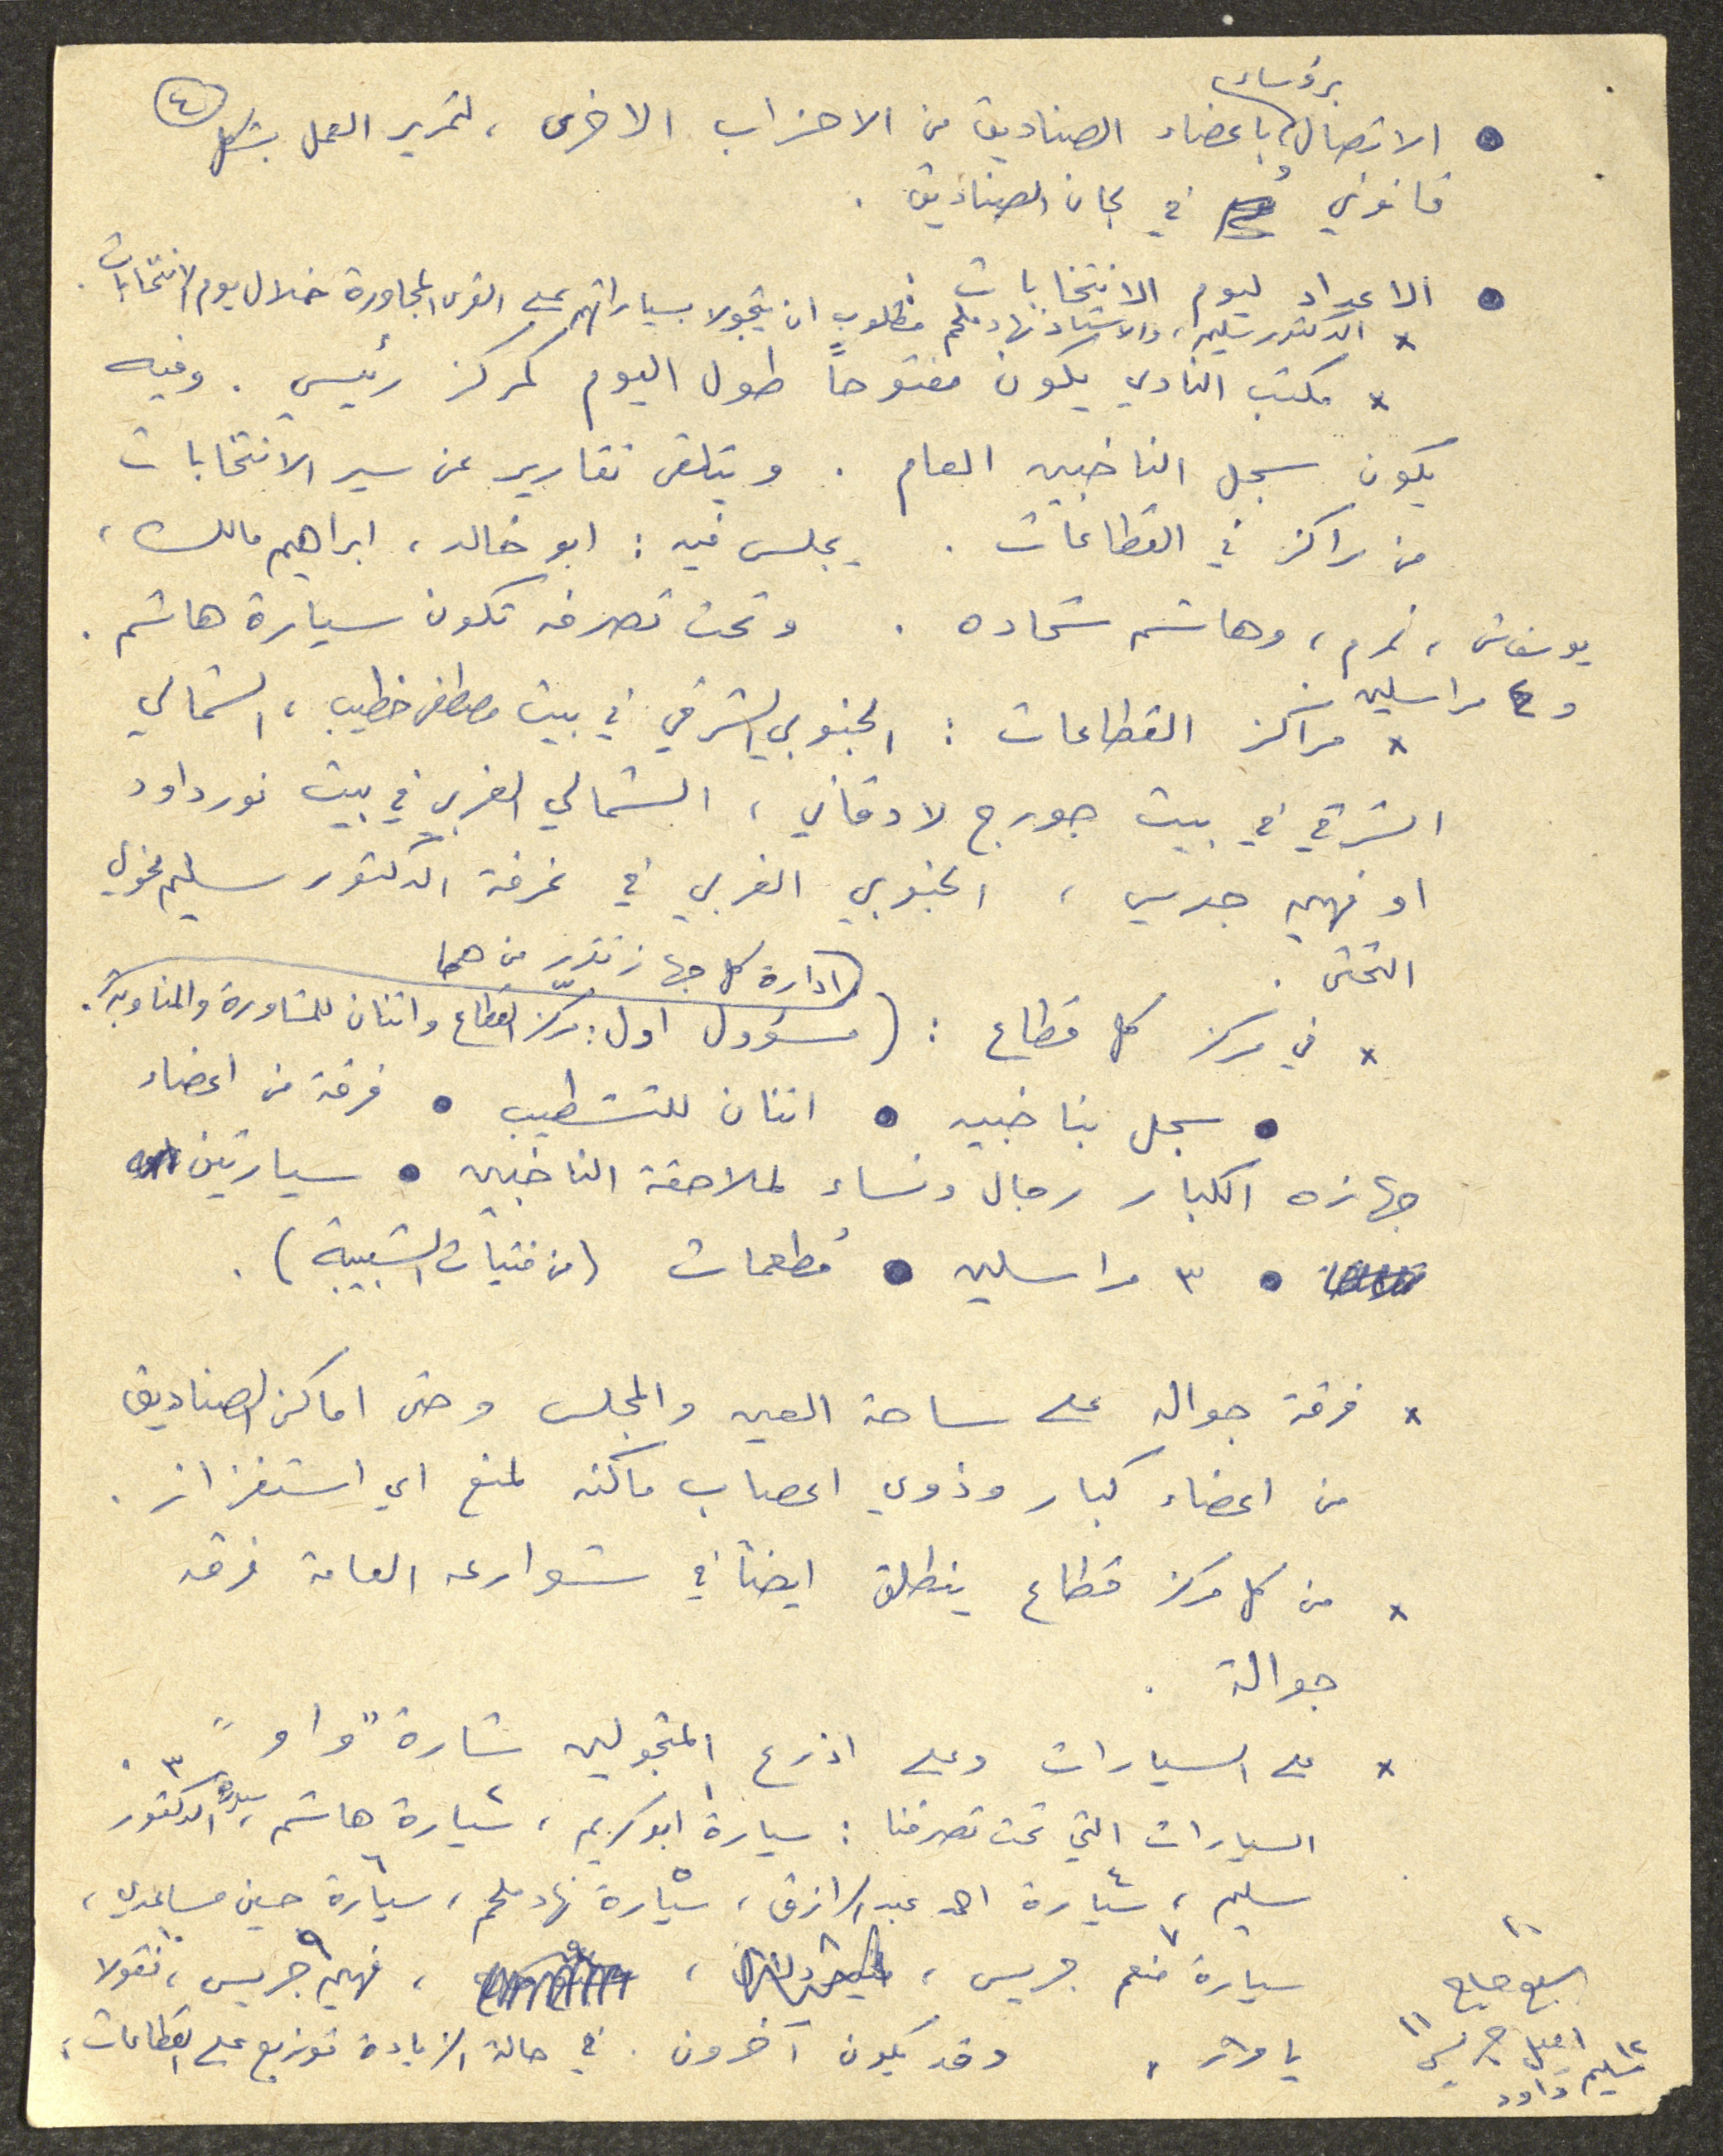 ٤
برؤساء
• الاتصال باعضاء الصناديق من الاحزاب الاخرى ، لتمرير العمل بشكل
قانوني في لجان الصناديق .
• الاعداد ليوم الانتخابات :
× الدكتور سليم ، والاستاذ نهاد ملحم مطلوب ان يتجولا بسياراتهم على القرى المجاورة خلال يوم الانتخابات .
× مكتب النادي يكون مفتوحاً طول اليوم كمركز رئيسي . وفيه
يكون سجل الناخبين العام . ويتلقى تقارير عن سير الانتخابات
من مراكز في القطاعات . يجلس فيه : ابو خالد ، ابراهيم مالك ،
، نمر م ، وهاشم شحاده . وتحت تصرفه تكون سيارة هاشم .
و ٤ مراسلين
× مراكز القطاعات : الجنوبي الشرقي في بيت مصطفى خطيب ، الشمالي
الشرقي في بيت جورج لادقاني ، الشمالي الغربي في بيت نور داود
او فهيم جريس ، الجنوبي الغربي في غرفة الدكتور سليم مخولي
التحتى .
ادارة كل جهاز تقرر من هما
× في مركز كل قطاع : ( مسؤول اول : مركّز القطاع واثنان للمشاورة والمناوبة .
• سجل بناخبيه • اثنان للتشطيب • فرقة من اعضاء
جهازه الكبار رجال ونساء لملاحقة الناخبين • سيارتين
• ٣ مراسلين • مُطعمات ( من فتيات الشبيبة ) .
× فرقة جواله على ساحة العين والمجلس وحتى اماكن الصناديق
من اعضاء كبار وذوي اعصاب ماكنه لمنع اي استفزاز .
× من كل مركز قطاع ينطلق ايضاً في شوارعه العامة فرقه
جوالة .
× على السيارات وعلى اذرع المتجولين شارة " واو " .
السيارات التي تحت تصرفنا : سيارة ١ ابو كريم ، سيارة ٢ هاشم ، سيارة ٣ الدكتور
سليم ، سيارة ٤ احمد عبد الرازق ، سيارة ٥ نهاد ملحم ، سيارة ٦ حسين مساعدي ،
سيارة ٧ منعم جريس ، ، ، فهيم ٩ جريس ، ١٠ نقولا
، وقد يكون آخرون . في حالة الزيادة توزيع على القطاعات .
١١ اميل جريس
١٢ سليم داود